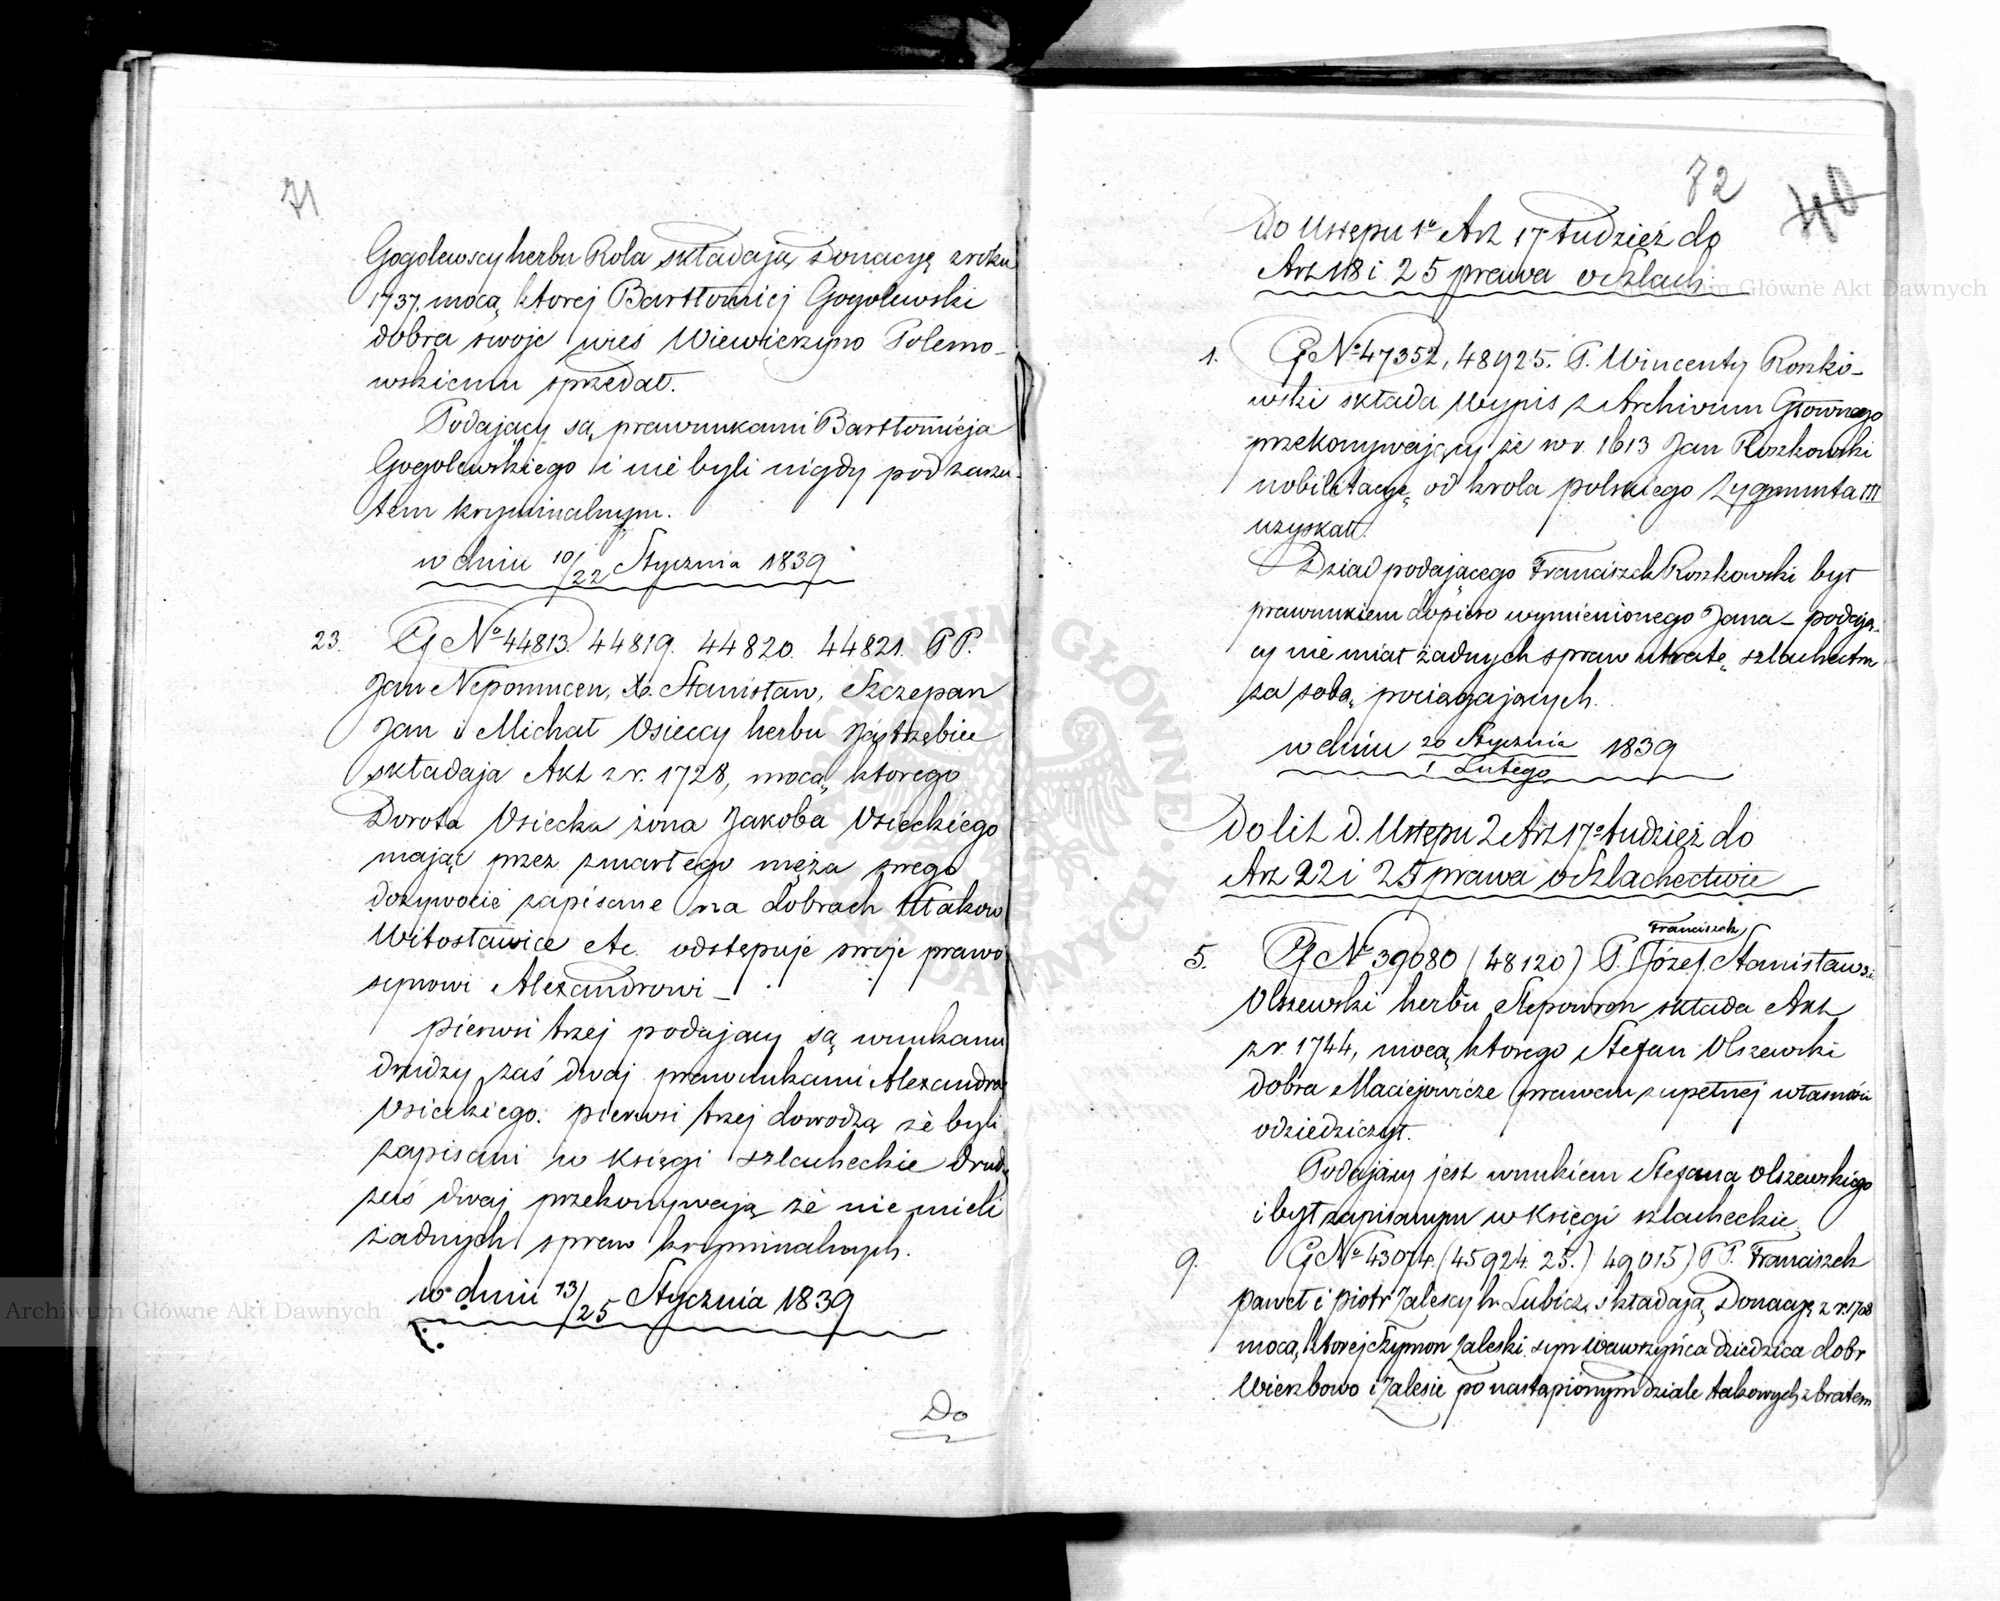 71
Gogolewscy herbu Rola składają donacyę z roku
1737. mocą ktorej Bartłomiej Gogolewski
dobra swoje wieś Wiewierzyno Polemo-
wskiemu sprzedał.
Podający są prawnukami Bartłomieja
Gogolewskiego i nie byli nigdy pod zarzu-
tem kryminalnym.
w dniu 10/22 Stycznia 1839
23. No 44813. 44819. 44820. 44821. PP.
Jan Nepomucen, X. Stanisław, Szczepan
Jan i Michał Osieccy herbu Jastrzębiec
składaja Akt z r. 1728, mocą ktorego
Dorota Osiecka żona Jakoba Osieckiego
mając przez zmarłego męża swego
dożywocie zapisane na dobrach
Witosławice etc. odstępuje swoje prawo
synowi Alexandrowi –
pierwsi trzej podający są wnukami
drudzy zaś dwaj prawnukami Alexandra
Osieckiego. pierwsi trzej dowodzą że byli
zapisani w księgi szlacheckie drudzy
zaś dwaj przekonywają że nie mieli
żadnych spraw kryminalnych.
w dniu 13/25 Stycznia 1839
Do
72 40
Do Ustępu 1o Art 17 tudzież do
Art 18 i 25 prawa o Szlach.
1. No 47352, 48925. P. Wincenty Roszko-
wski składa Wypis z Archiwum Głownego
przekonywający że w r. 1613 Jan Roszkowski
nobilitacyę od krola polskiego Zygmunta III
uzyskał.
Dziad podającego Franciszek Roszkowski był
prawnukiem dopiero wymienionego Jana – podają-
cy nie miał żadnych spraw utratę szlachectwa
za sobą pociągających.
w dniu 20 Stycznia / 1 Lutego 1839
Do lit d. Ustępu 2 Art 17o tudzież do
Art 22 i 25 prawa o Szlachectwie
Franciszek
5. No 39080 (48120) P. Józef Stanisław
Olszewski herbu Slepowron składa Akt
z r. 1744, mocą ktorego Stefan Olszewski
dobra Maciejowicze prawem zupełnej własności
odziedziczył.
Podający jest wnukiem Stefana Olszewskiego
i był zapisanym w Księgi szlacheckie.
9. No 43074. (45924. 25.) 49015) PP. Franciszek
Paweł i Piotr Zalescy h. Lubicz, składają Donacyę z r. 1768
mocą ktorej Szymon Zaleski syn Wawrzyńca dziedzica dobr
Wierzbowo i Zalesie po nastąpionym dziale takowych z bratem
Archiwum Główne Akt Dawnych
Archiwum Główne Akt Dawnych
ARCHIWUM GŁÓWNE AKT DAWNYCH